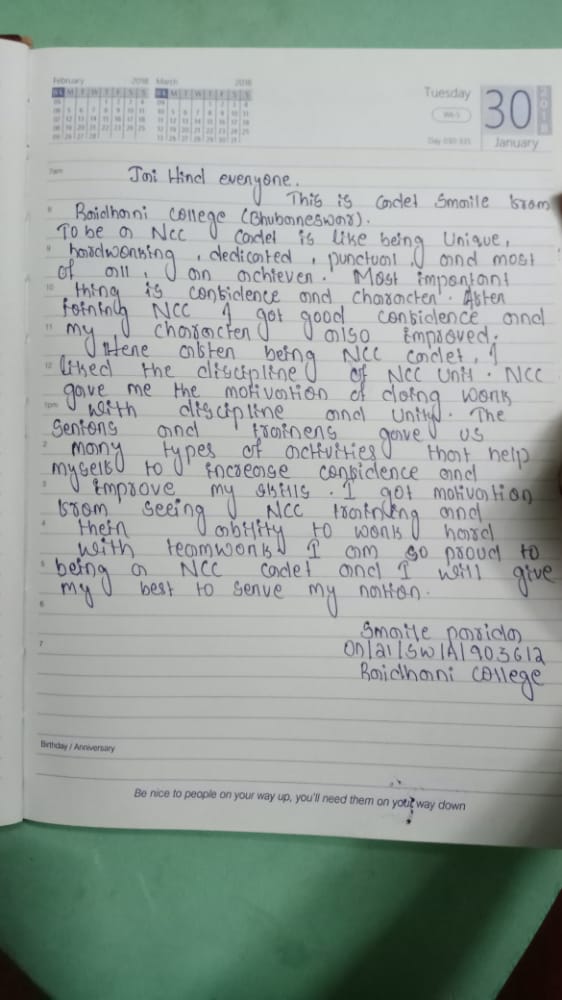 February 2018 March 2018
Tuesday
30
2018
January
7am
Jai Hind everyone.
This is cadet Smaile from
8 Rajdhani college (Bhubaneswar).
To be a NCC cadet is like being Unique,
9 hardworking, dedicated, punctual, and most
of all, an achiever. Most important
10 thing is confidence and character. After
joining NCC I got good confidence and
11 my character also improved.
Here after being NCC cadet, I
12 liked the discipline of NCC Unit. NCC
gave me the motivation of doing work
1pm with discipline and Unity. The
Seniors and trainers gave us
2 many types of activities that help
myself to increase confidence and
3 improve my skills. I got motivation
from seeing NCC training and
4 their ability to work hard
with teamwork I am so proud to
5 being a NCC cadet and I will give
my best to serve my nation.
6
Smaile parida
7 OD/21/SW/A/903612
Rajdhani college
Birthday / Anniversary
Be nice to people on your way up, you'll need them on your way down